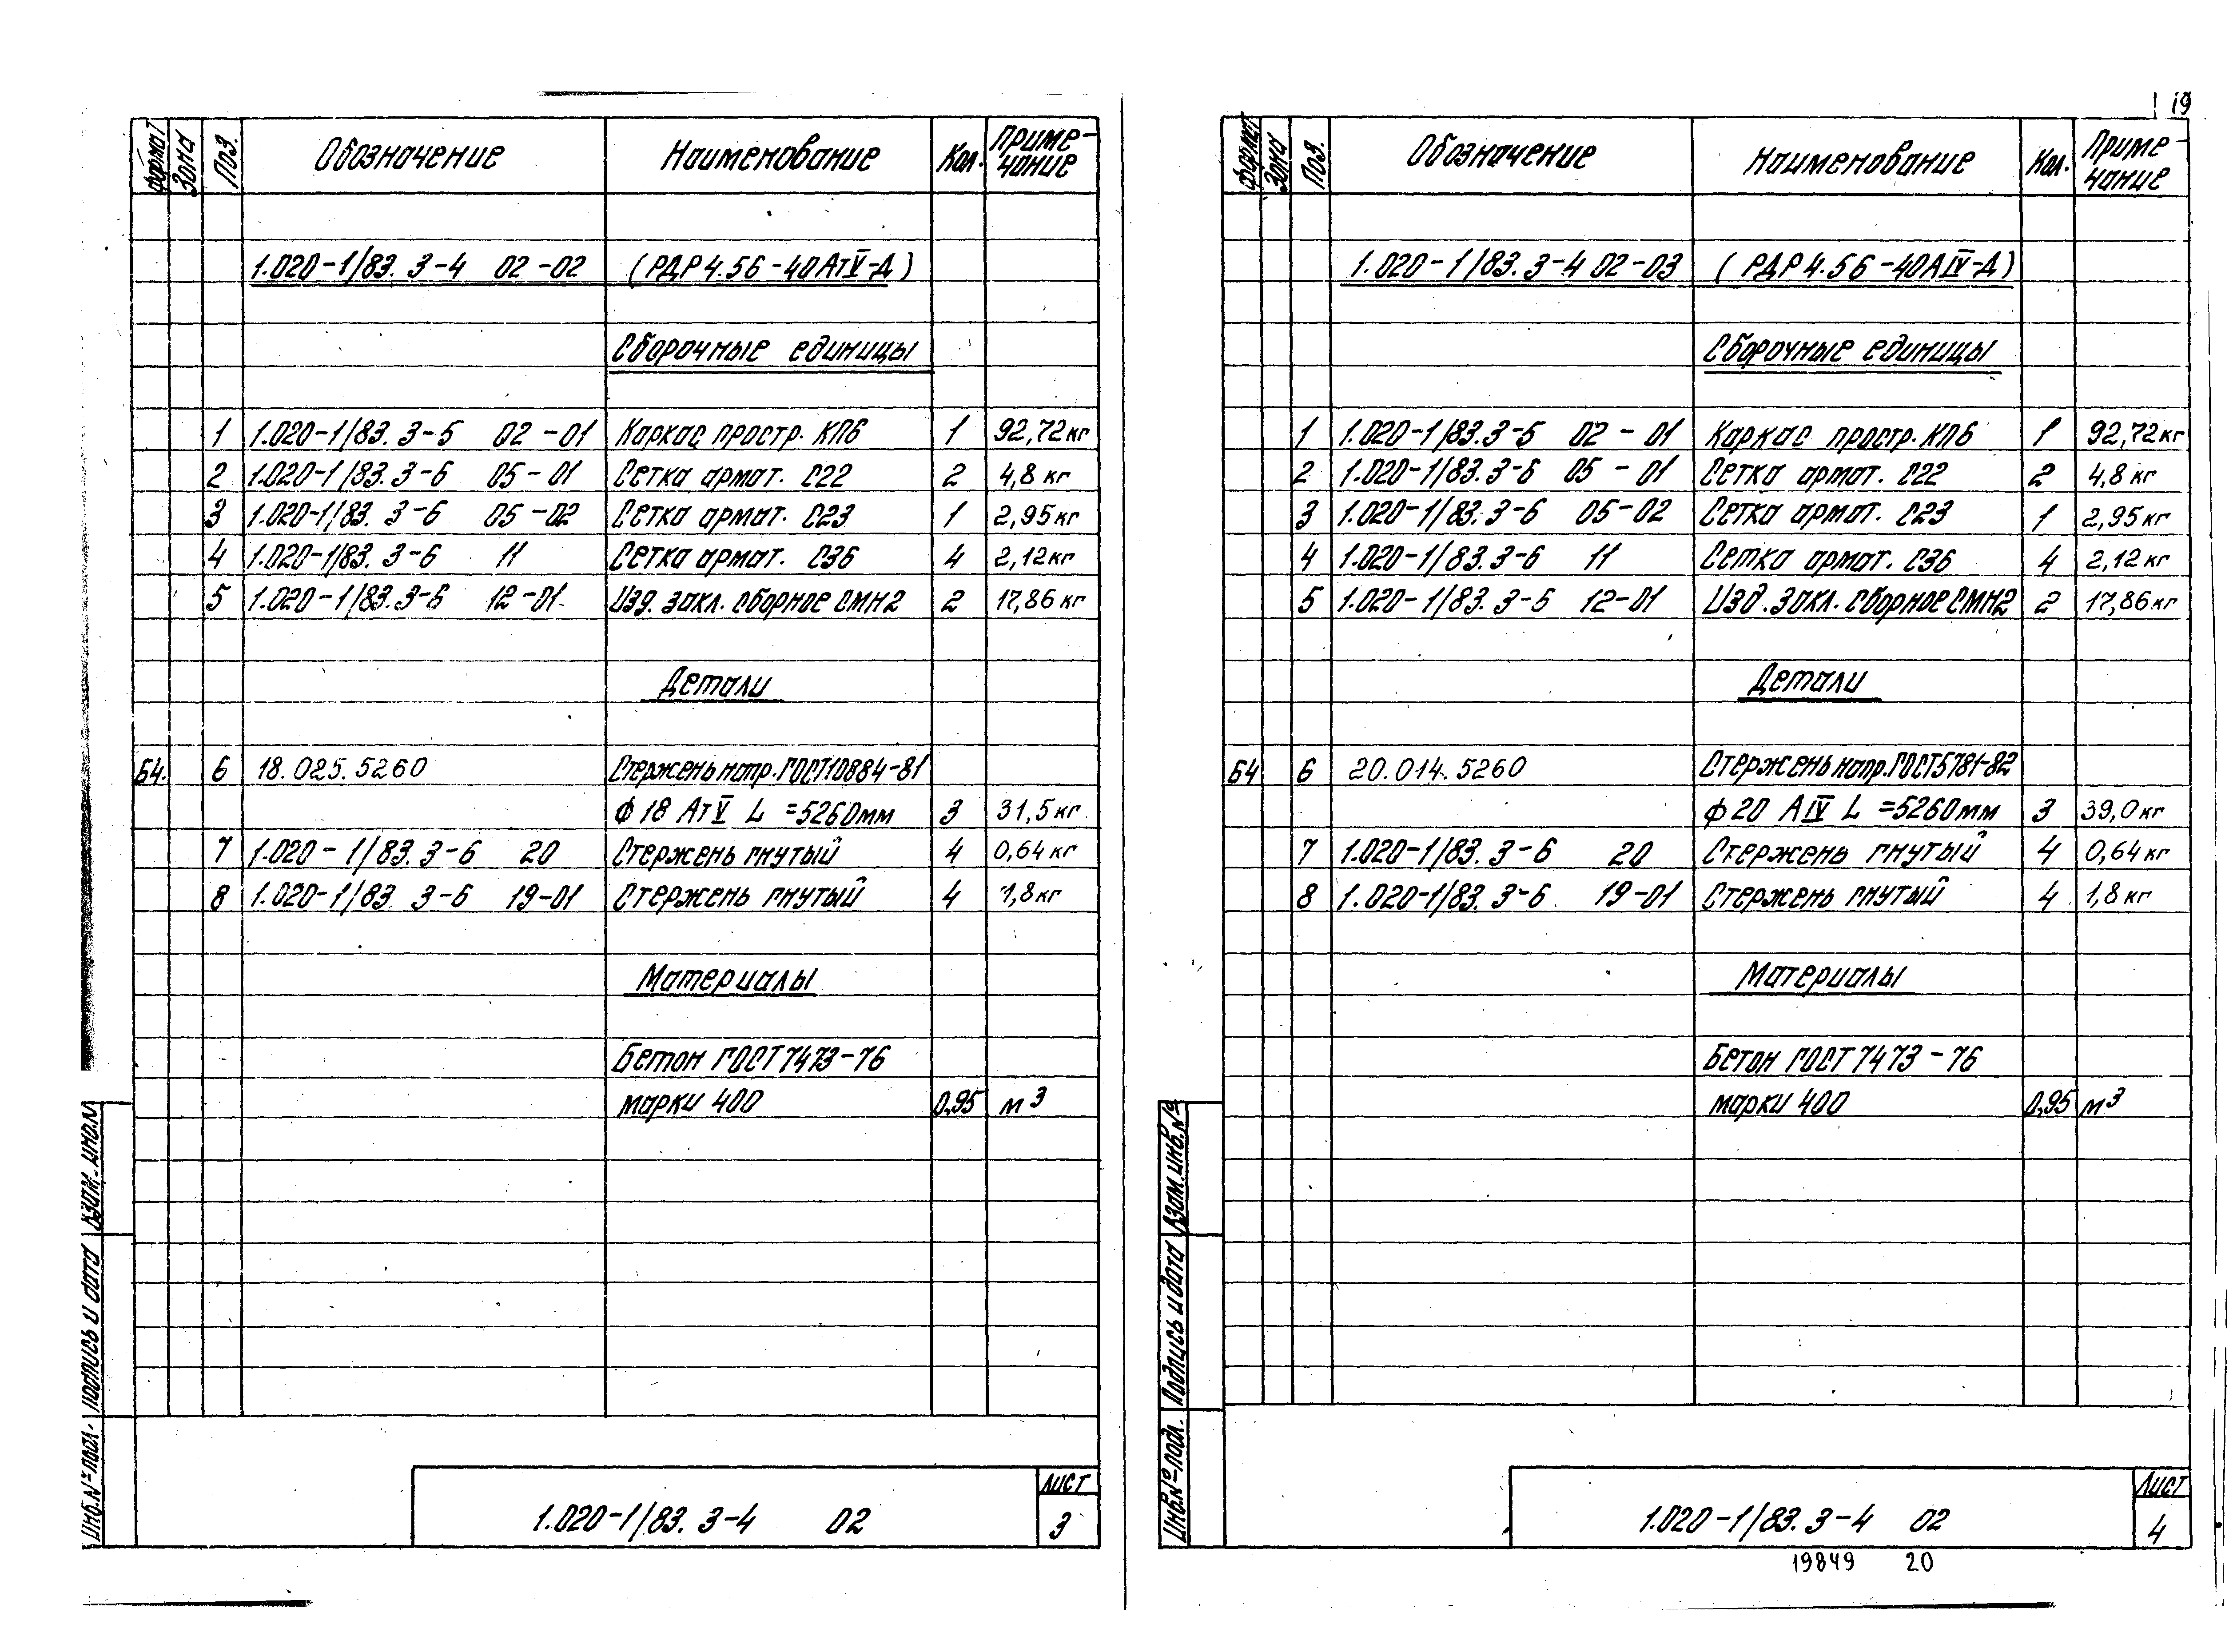 19
Формат Зона Поз. Обозначение Наименование Кол. Приме-
чание
1.020-1/83. 3-4 02-02 (РДР4.56-40АтV-Д)
Сборочные единицы
1 1.020-1/83. 3-5 02-01 Каркас простр. КП6 1 92,72кг
2 1.020-1/83. 3-6 05-01 Сетка армат. С22 2 4,8 кг
3 1.020-1/83. 3-6 05-02 Сетка армат. С23 1 2,95кг
4 1.020-1/83. 3-6 11 Сетка армат. С36 4 2,12кг
5 1.020-1/83. 3-6 12-01 Изд. закл. сборное СМН2 2 17,86 кг
Детали
Б4. 6 18.025.5260 Стержень напр. ГОСТ10884-81
ф 18 АтV L =5260мм 3 31,5 кг
7 1.020-1/83. 3-6 20 Стержень гнутый 4 0,64 кг
8 1.020-1/83 3-6 19-01 Стержень гнутый 4 1,8 кг
Материалы
Бетон ГОСТ 7473-76
марки 400 0,95 м3
Инв.№ подл. Подпись и дата Взам. инв.№
1.020-1/83. 3-4 02
Лист
3
Формат Зона Поз. Обозначение Наименование Кол. Приме-
чание
1.020-1/83. 3-4 02-03 (РДР4.56-40АIV-Д)
Сборочные единицы
1 1.020-1/83. 3-5 02-01 Каркас простр. КП6 1 92,72кг
2 1.020-1/83. 3-6 05-01 Сетка армат. С22 2 4,8 кг
3 1.020-1/83. 3-6 05-02 Сетка армат. С23 1 2,95 кг
4 1.020-1/83. 3-6 11 Сетка армат. С36 4 2,12 кг
5 1.020-1/83. 3-6 12-01 Изд. закл. сборное СМН2 2 17,86 кг
Детали
Б4 6 20.014.5260 Стержень напр. ГОСТ5781-82
ф 20 АIV L =5260мм 3 39,0 кг
7 1.020-1/83. 3-6 20 Стержень гнутый 4 0,64 кг
8 1.020-1/83. 3-6 19-01 Стержень гнутый 4 1,8 кг
Материалы
Бетон ГОСТ 7473-76
марки 400 0,95 м3
Инв.№ подл. Подпись и дата Взам. инв.№
1.020-1/83. 3-4 02
Лист
4
19849 20